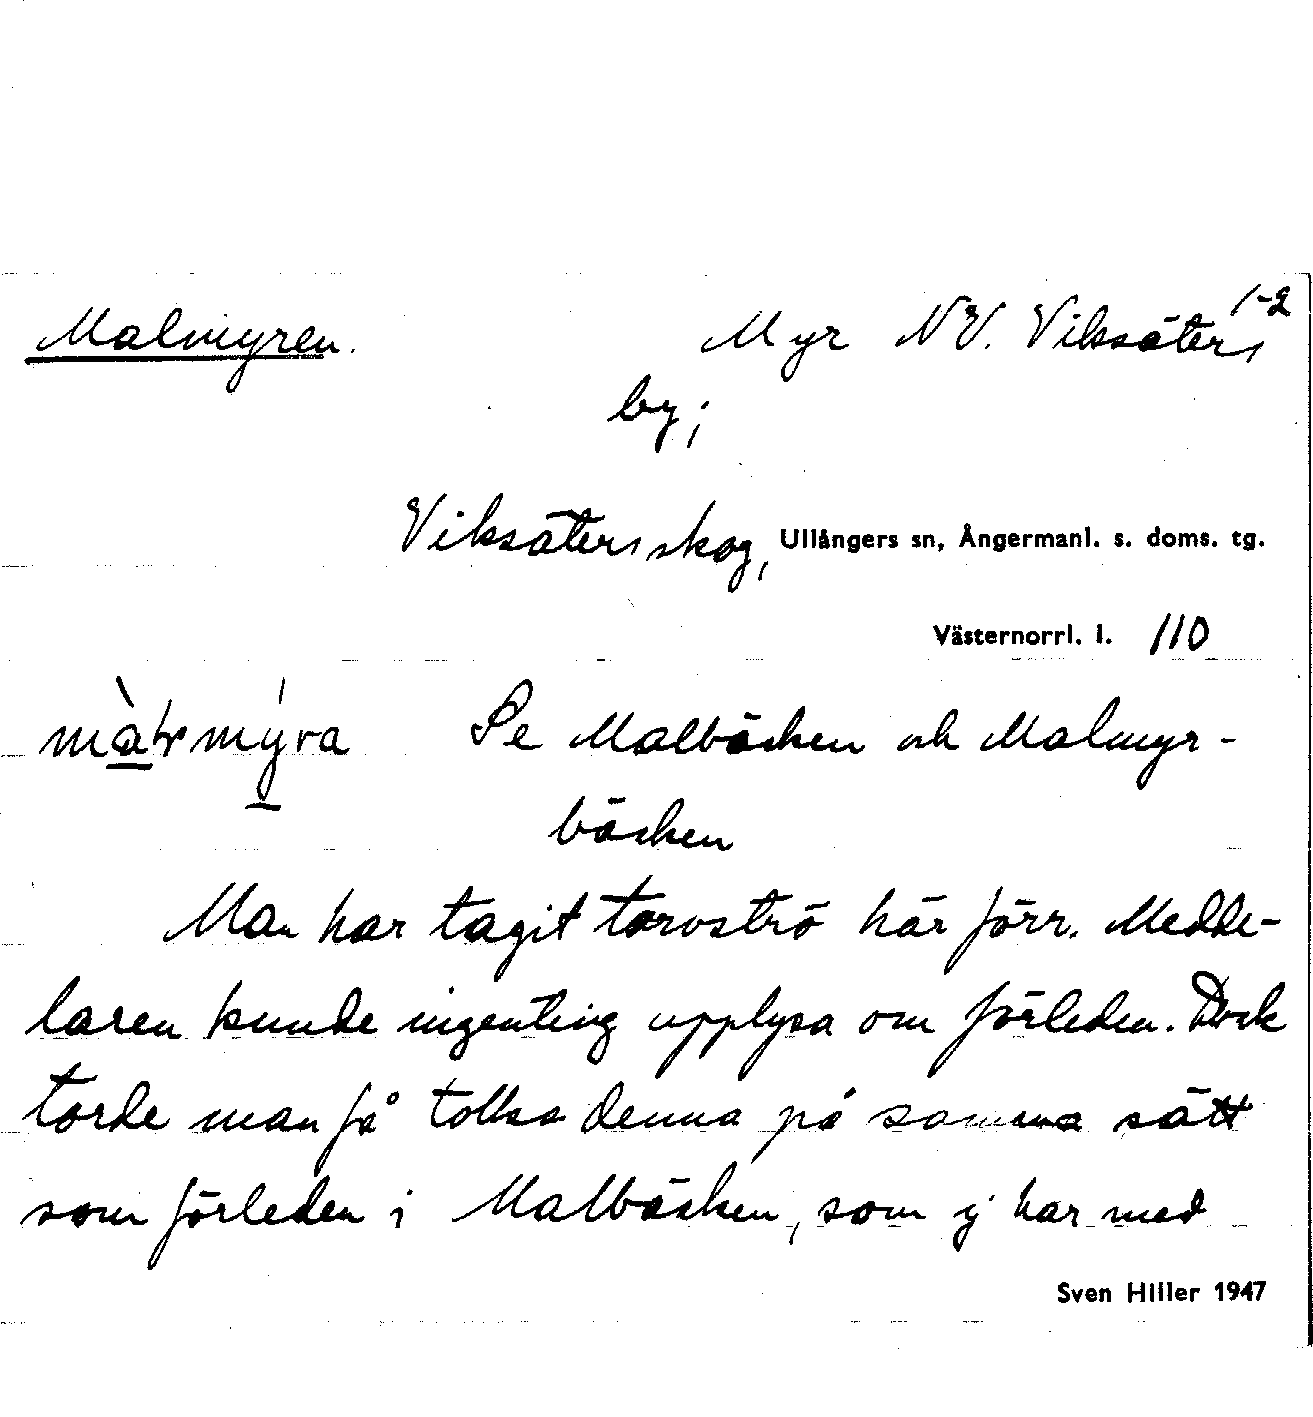 Malmyren. Myr NV. Viksäters 1-2
by;
Viksäters skog, Ullångers sn, Ångermanl. s. doms. tg.
Västernorrl. l. 110
Se Malbäcken och Malmyr-
bäcken
Man har tagit torvströ här förr. Medde-
laren kunde ingenting upplysa om förleden. Dock
torde man få tolka denna på samma sätt
som förleden i Malbäcken, som ej har med
Sven Hiller 1947